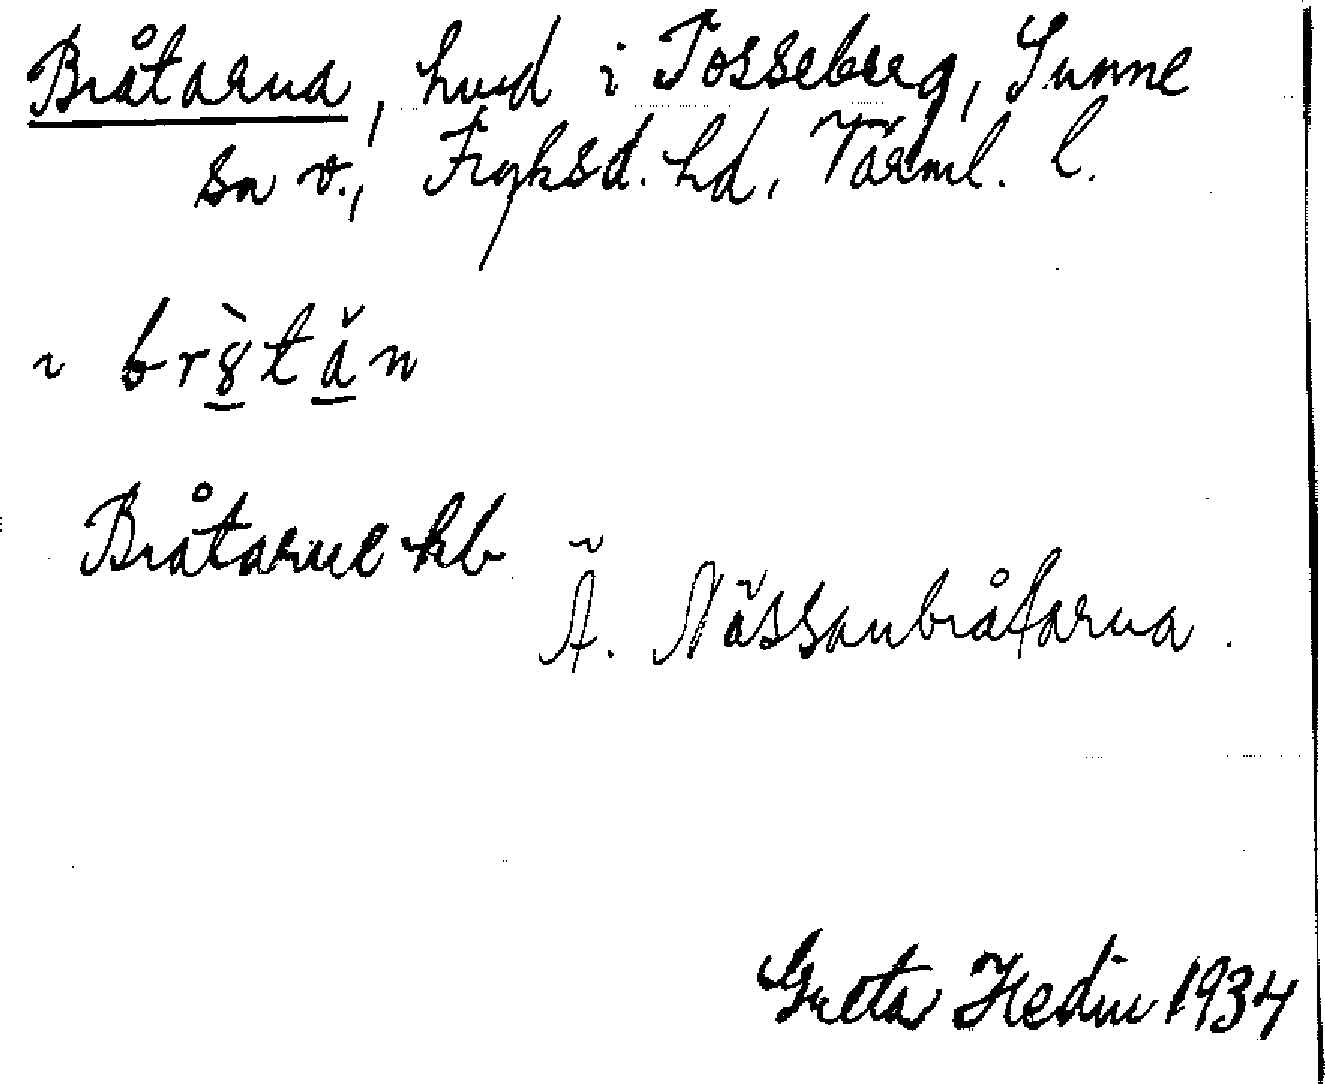 Bråtarna, hmd i Tosseberg, Sunne
sn v., Fryksd. hd, Värml. l.
~ br8̀tăn
Bråtarne kb
Ä. Nässanbråtarna.
Greta Hedin 1934